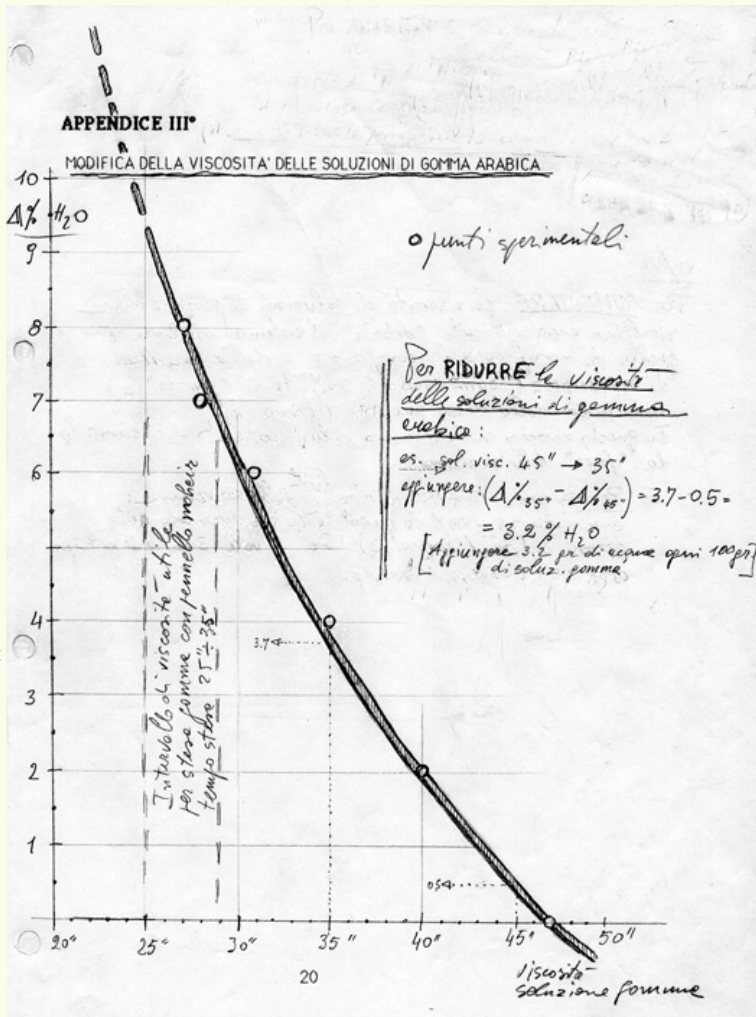 APPENDICE III°
MODIFICA DELLA VISCOSITA' DELLE SOLUZIONI DI GOMMA ARABICA
10
Δ% H₂O
9
8
7
6
4
3
2
1
o punti sperimentali
Per RIDURRE la viscosità
delle soluzioni di gomma
arabica:
es. sol. visc. 45" → 35"
aggiungere: (Δ%35" - Δ%45") = 3.7-0.5=
= 3.2% H₂O
[Aggiungere 3.2 gr. di acqua ogni 100gr]
di soluz. gomma
Intervallo di viscosità utile
per stesa gomma con pennello mohair
tempo stesa 25"÷35"
3.7
0.5
20" 25" 30" 35" 40" 45" 50"
viscosità
soluzione gomma
20